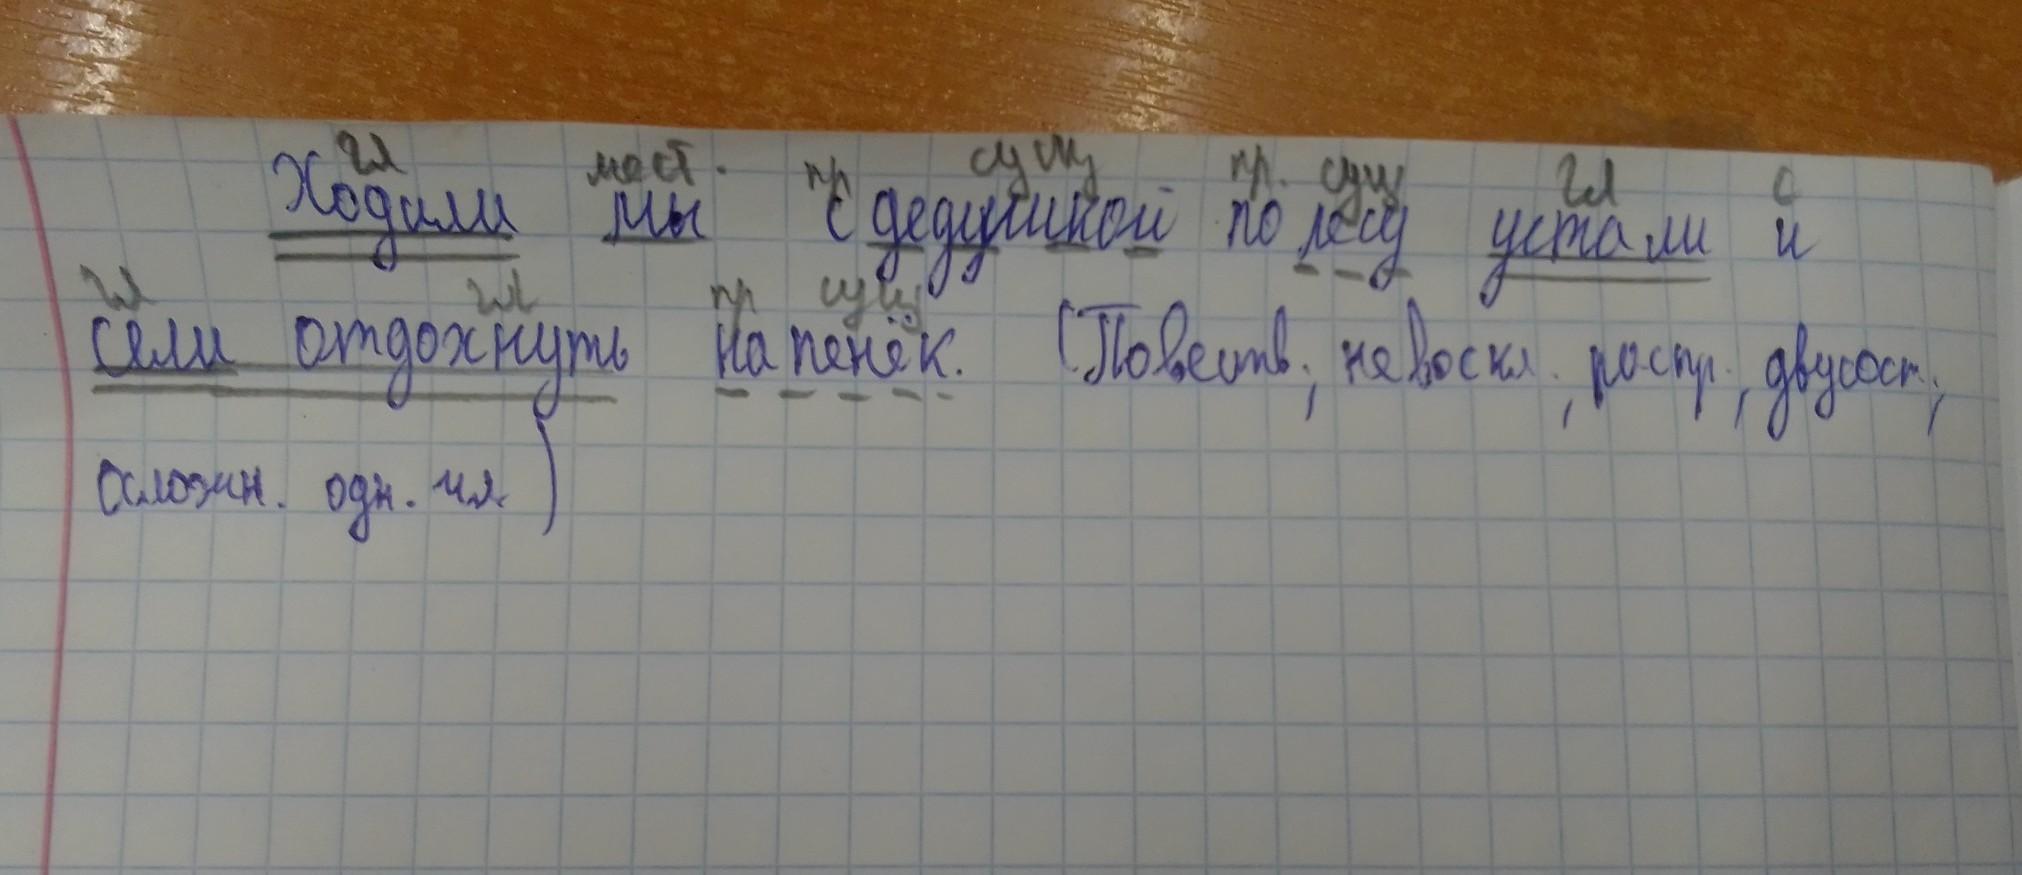 гл мест. пр сущ пр. сущ гл с
Ходили мы с дедушкой по лесу устали и
гл гл пр сущ
сели отдохнуть на пенёк. (Повеств., невоскл., распр., двусост.,
осложн. одн. чл)